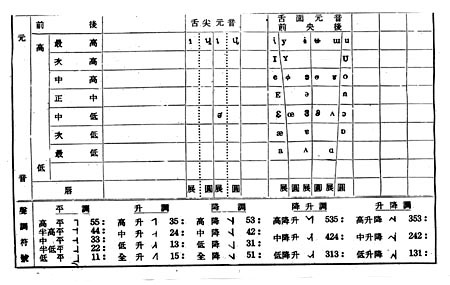 元 前 後 舌尖元音 舌面元音
前 央 後
高 最高 ɿ ʮ ʅ ʯ i y ɨ ʉ ɯ u
次高 I Y U
中高 e ø ɘ ɵ ɤ o
正中 E ə
中低 ɛ œ ɜ ʌ ɔ
次低 æ ɐ
低 最低 a ᴀ ɑ ɒ
音 唇 展 圓 展 圓 展 圓 展 圓 展 圓
聲調符號 平調 升調 降調 降升調 升降調
高平 ˥ 55: 高升 35: 高降 53: 高降升 535: 高升降 353:
半高平 ˦ 44: 中升 24: 中降 42: 中降升 424: 中升降 242:
中平 ˧ 33:
半低平 ˨ 22: 低升 13: 低降 31:
低平 ˩ 11: 全升 15: 全降 51: 低降升 313: 低升降 131: